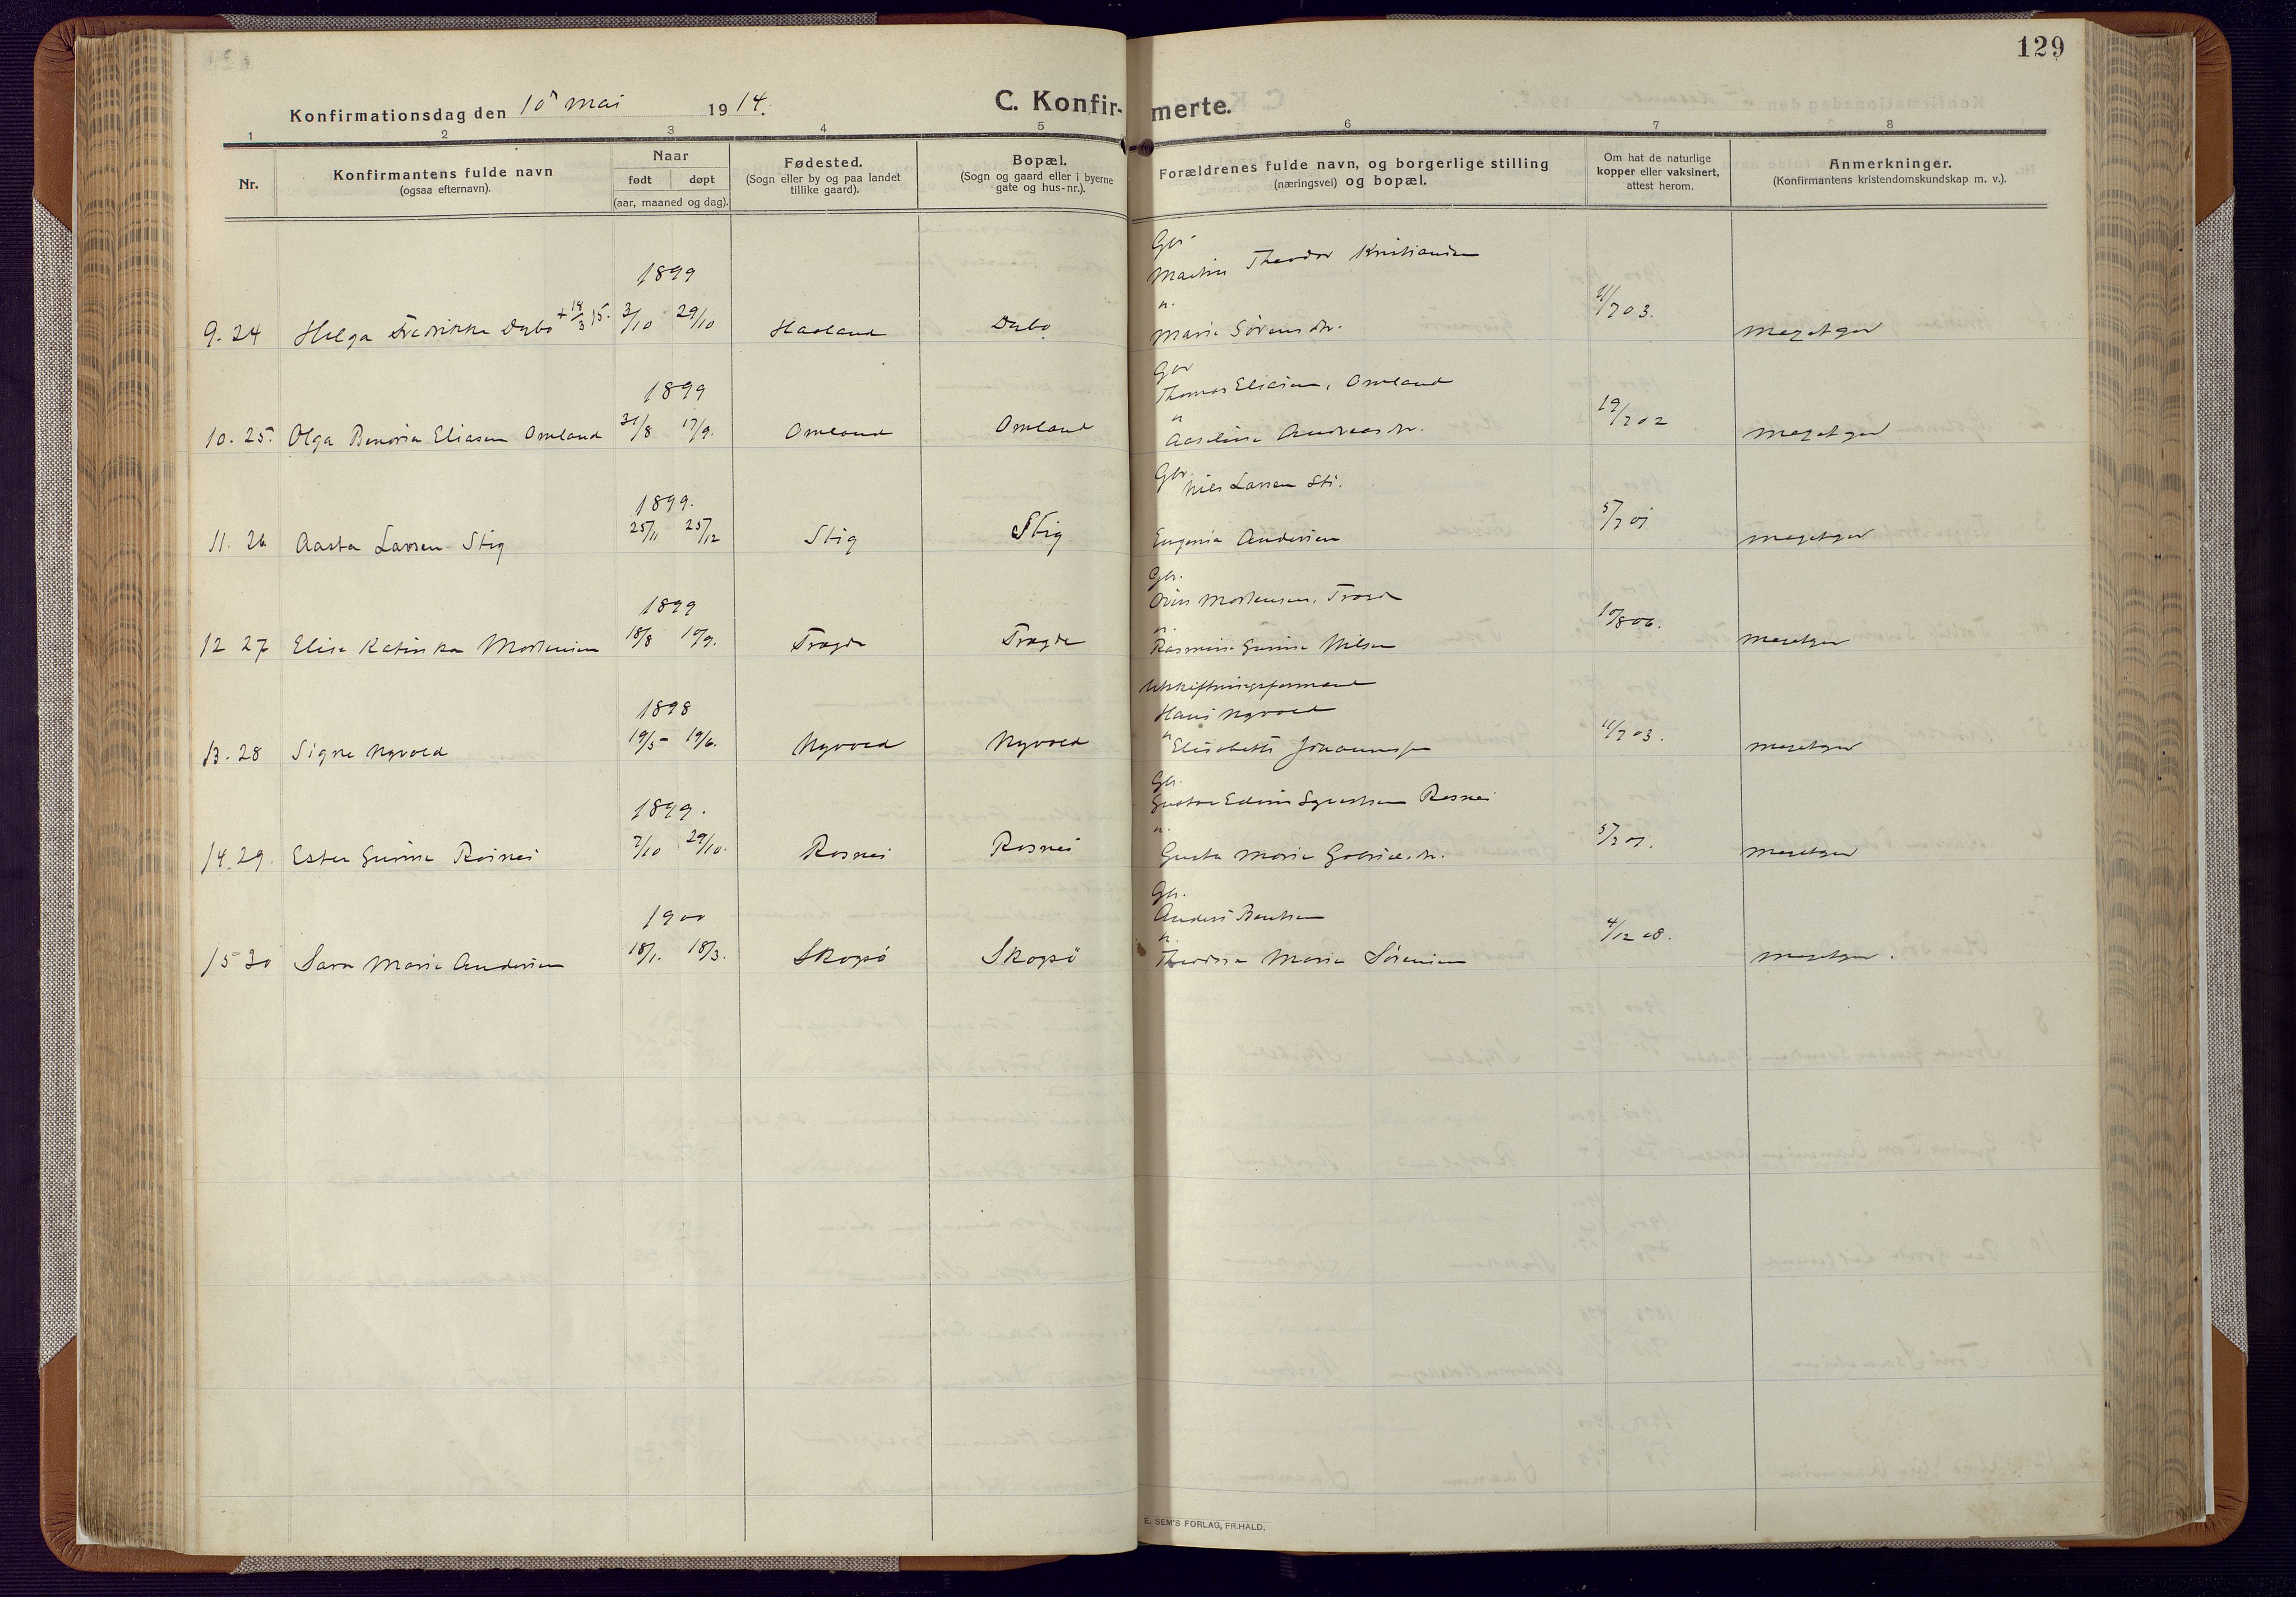 129
Konfirmationsdag den 10 mai 1914.
C. Konfirmerte.
1 2 3 4 5 6 7 8
Nr.
Konfirmantens fulde navn
(ogsaa efternavn).
Naar
født døpt
(aar, maaned og dag).
Fødested.
(Sogn eller by og paa landet
tillike gaard).
Bopæl.
(Sogn og gaard eller i byerne
gate og hus-nr.).
Forældrenes fulde navn, og borgerlige stilling
(næringsvei) og bopæl.
Om hat de naturlige
kopper eller vaksinert,
attest herom.
Anmerkninger.
(Konfirmantens kristendomskundskap m. v.).
Gbr
Martin Theodor Kristiansen
1899
9. 24 Helga Fredrikke Dybo + 18/3 15. 3/10 29/10 Haaland Dybo
Maria Sørensdtr. 4/7 03. megetgod
Gbr
Thomas Eliasen, Omland
1899
10. 25. Olga Benoria Eliasen Omland 31/8 17/9. Omland Omland
Aaselina Andreasdtr. 19/7 02 megetgod
Gbr.
Nils Larsen Sti.
1899.
11. 26 Aasta Larsen Stig 25/11 25/12 Stig Stig
Eugenia Andersen 5/7 01 megetgod
Gbr.
Mortensen,
1899
12 27 Elise Katinka Mortensen 18/8 10/9. Trægde Trægde
Rasmine Gurine Nilsen 10/8 06. megetgod
Utskiftningsformand
Hans Nyvold
1898
13. 28 Signe Nyvold 19/5 19/6. Nyvold Nyvold
Elisabeth Johannessen 11/7 03. megetgod
Gbr.
Gustav Edvin Rosnes
1899.
14. 29. Ester Gurine Rosnes 7/10 29/10. Rosnes Rosnes
Gusta Marie Gabrielsdtr. 5/7 01. megetgod
Gbr.
Anders Bentsen
1900
15 30 Sara Marie Andersen 18/1. 18/3. Skogsø Skogsö
Marie Sörensen 4/12 08. megetgod.
E. SEM'S FORLAG, FR.HALD.